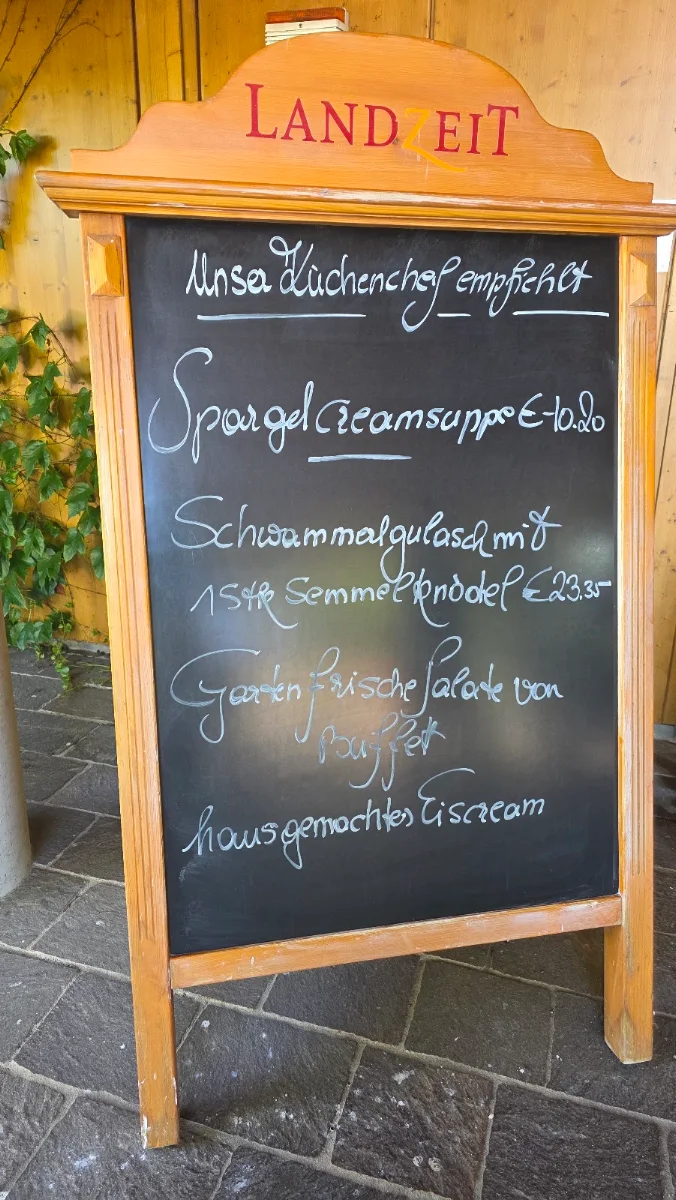 LANDZEIT
Unser Küchenchef empfiehlt
Spargelcreamsuppe € 10.20
Schwammerlgulasch mit
1 Stk Semmelknödel € 23.35
Gartenfrische Salate von
Buffet
hausgemachtes Eiscream